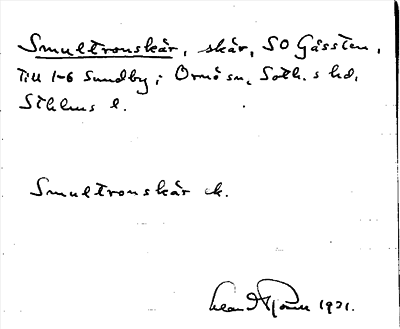 Smultronskär, skär, SO Gåssten,
till 1-6 Sundby, i Ornö sn, Soth.s hd,
Sthlms l.
Smultronskär ek.
1931.